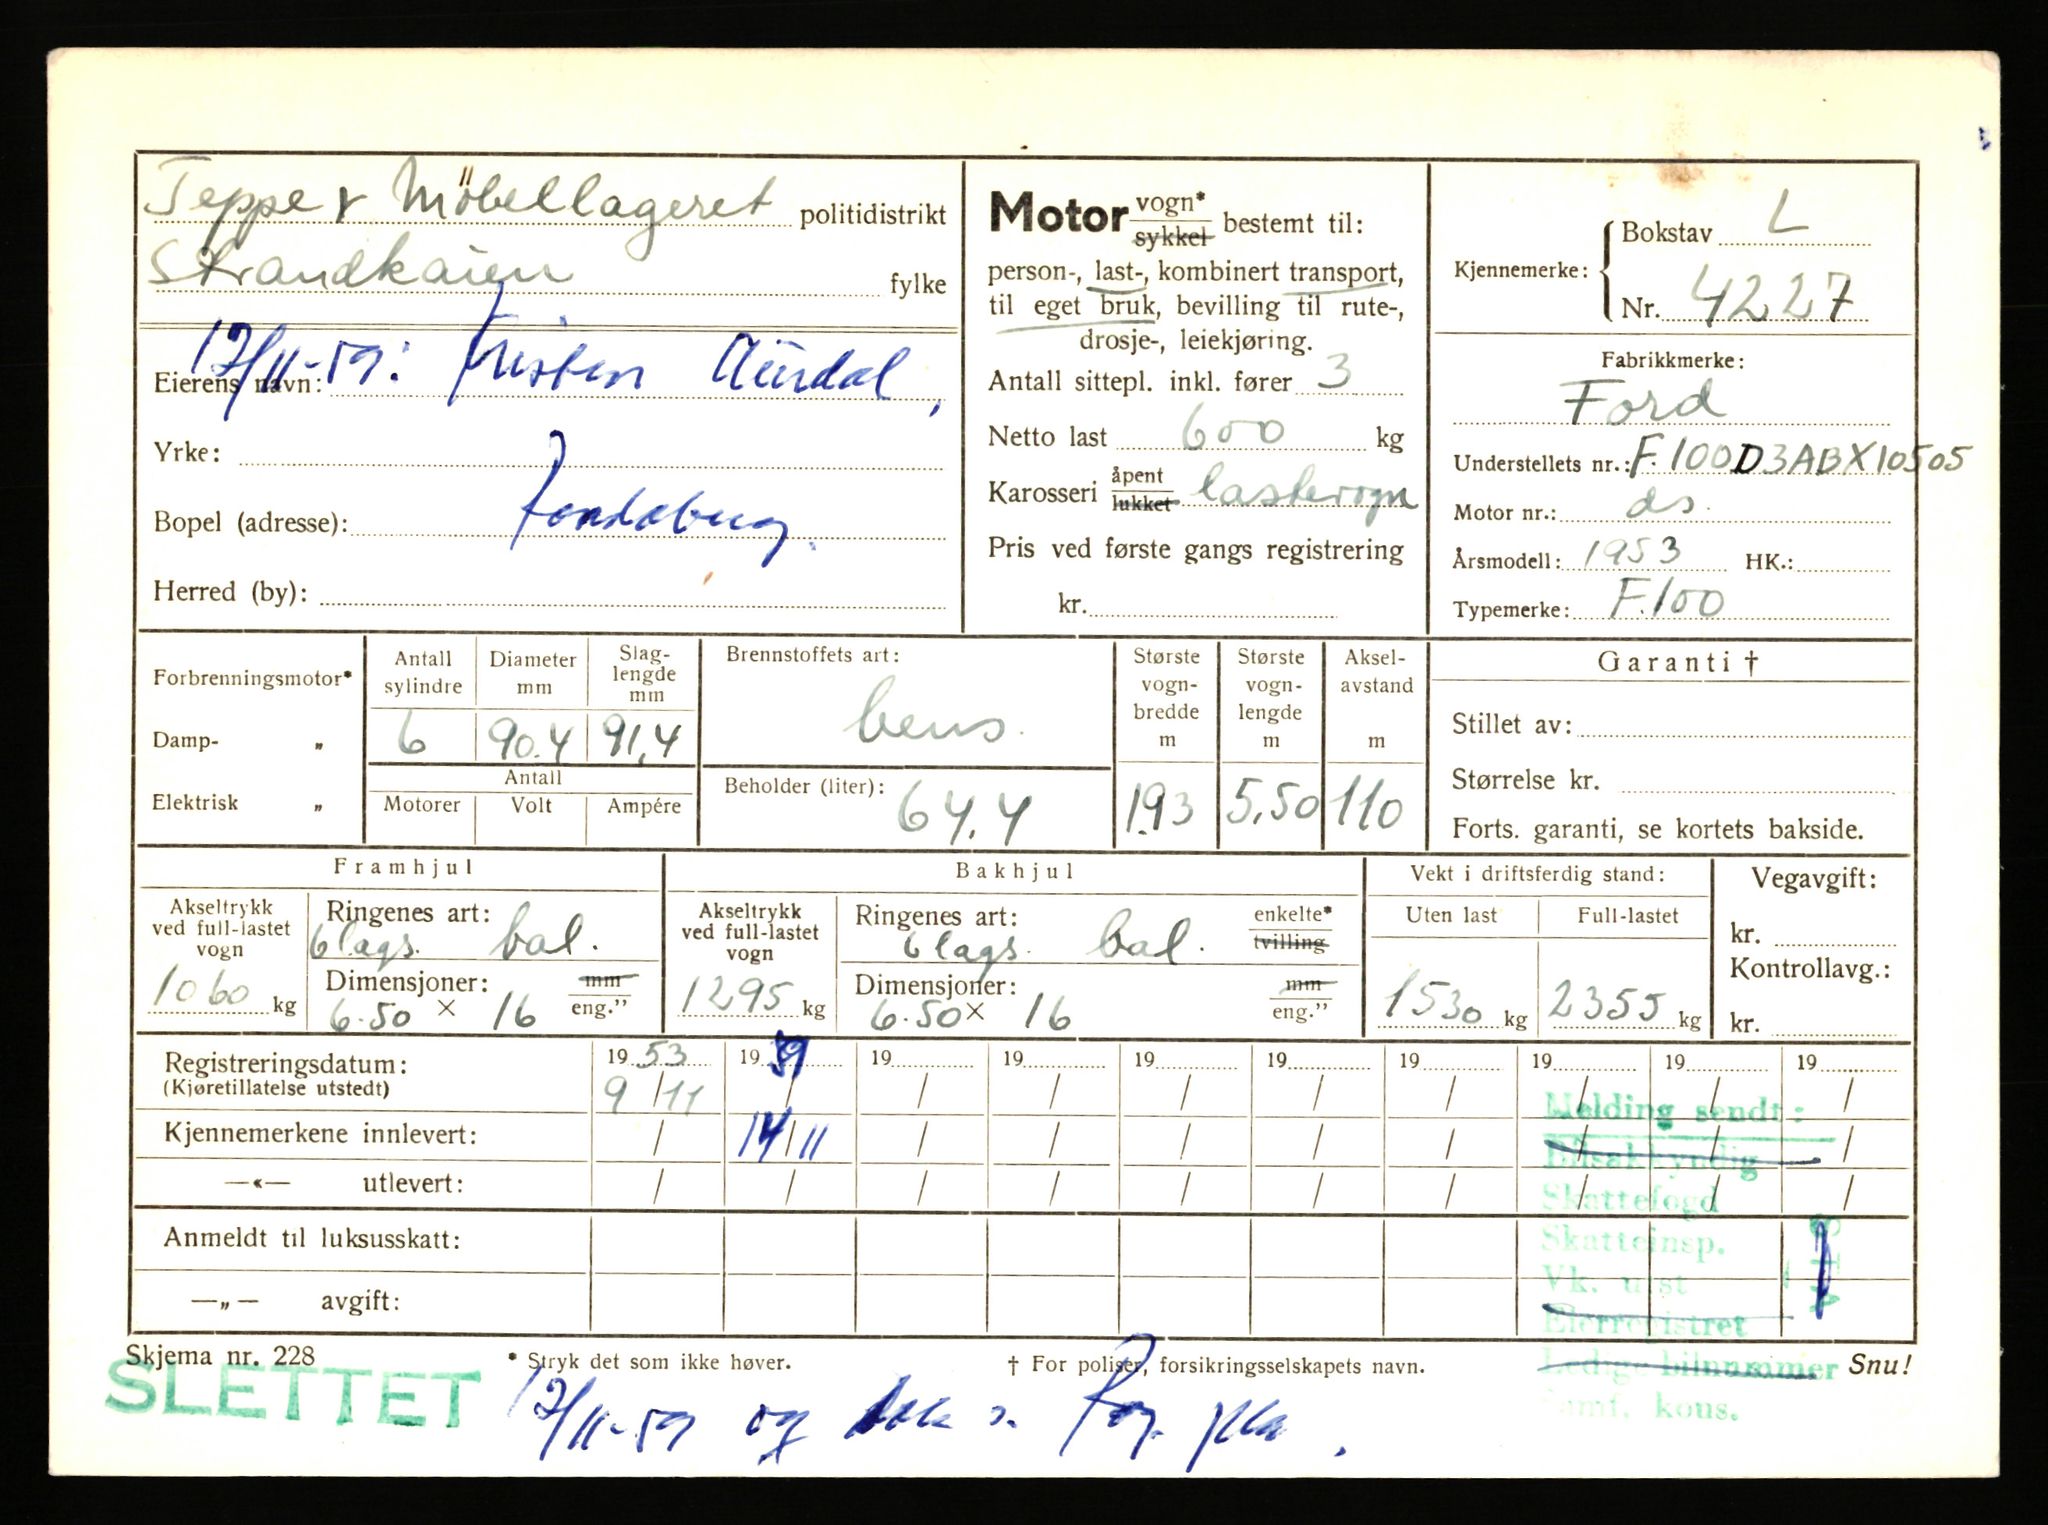 Teppe & Möbellageret politidistrikt
Strandkaien fylke
17/11-59: Kristen Aursdal,
Eierens navn:
Yrke:
Bopel (adresse):
Herred (by):
Motor vogn* sykkel bestemt til:
person-, last-, kombinert transport,
til eget bruk, bevilling til rute-,
drosje-, leiekjøring.
Antall sittepl. inkl. fører 3
Netto last 600 kg
Karosseri åpent lukket lastevogn
Pris ved første gangs registrering
kr.
Kjennemerke: Bokstav L
Nr. 4227
Fabrikkmerke:
Ford
Understellets nr.: F.100D3ABX10505
Motor nr.: ds.
Årsmodell: 1953 HK.:
Typemerke: F.100
Forbrenningsmotor*
Damp- „
Elektrisk „
Antall sylindre 6
Diameter mm 90.4
Slag-lengde mm 91,4
Antall
Motorer Volt Ampére
Brennstoffets art:
bens.
Beholder (liter): 64.4
Største vogn-bredde m 1.93
Største vogn-lengde m 5.50
Aksel-avstand m 110
Garanti †
Stillet av:
Størrelse kr.
Forts. garanti, se kortets bakside.
Framhjul
Akseltrykk ved full-lastet vogn 1060 kg
Ringenes art: 6 lags. bal.
Dimensjoner: mm
6.50 × 16 eng.”
Bakhjul
Akseltrykk ved full-lastet vogn 1295 kg
Ringenes art: enkelte* tvilling
6 lags. bal.
Dimensjoner: mm
6.50 × 16 eng.”
Vekt i driftsferdig stand:
Uten last 1530 kg
Full-lastet 2355 kg
Vegavgift:
kr.
Kontrollavg.:
kr.
Registreringsdatum: 19 53 19 59 19 19 19 19 19 19 19 19
(Kjøretillatelse utstedt) 9/11 / / / / / / / / /
Kjennemerkene innlevert: / 14/11 / / / / / / / /
—«— utlevert: / / / / / / / / / /
Anmeldt til luksusskatt:
—„— avgift:
Melding sendt:
Bilsakkyndig
Skattefogd
Skatteinsp.
Vk. utst
Eierregistret
Ledige bilnummer
Samf. kons.
Skjema nr. 228 * Stryk det som ikke høver. † For poliser, forsikringsselskapets navn. Snu!
SLETTET
17/11-59 og